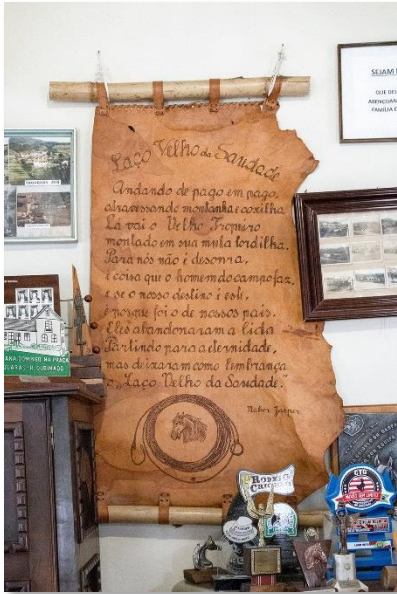 Laço Velho da Saudade
Andando de pago em pago,
atravessando montanha e coxilha
Lá vai o Velho Tropeiro
montado em sua mula tordilha.
Para nós não é desonra,
é coisa que o homem do campo faz,
e se o nosso destino é este,
é porque foi o de nossos pais.
Eles abandonaram a lida
Partindo para a eternidade,
mas deixaram como lembrança
o "Laço Velho da Saudade."
SEJAM
QUE DEU
FAMÍLIA
RODEIO
CRIOULO
CTG